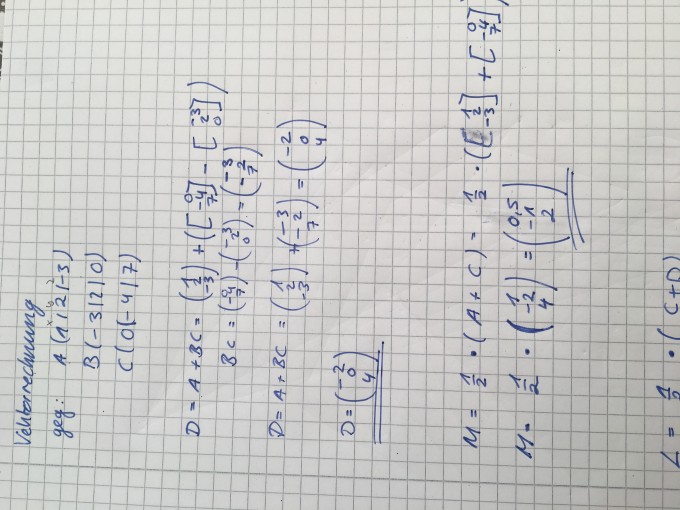 Vektorrechnung
geg: A (1|2|-3)
B (-3|2|0)
C (0|-4|7)
D = A + BC = (1 2 -3) + ([0 -4 7] - [-3 2 0])
BC = (0 -4 7) - (-3 2 0) = (-3 -2 7)
D = A + BC = (1 2 -3) + (-3 -2 7) = (-2 0 4)
D = (-2 0 4)
M = 1/2 · (A + C) = 1/2 · ([1 2 -3] + [0 -4 7]
M = 1/2 · (1 -2 4) = (0,5 -1 2)
= 1/2 · (C+D)